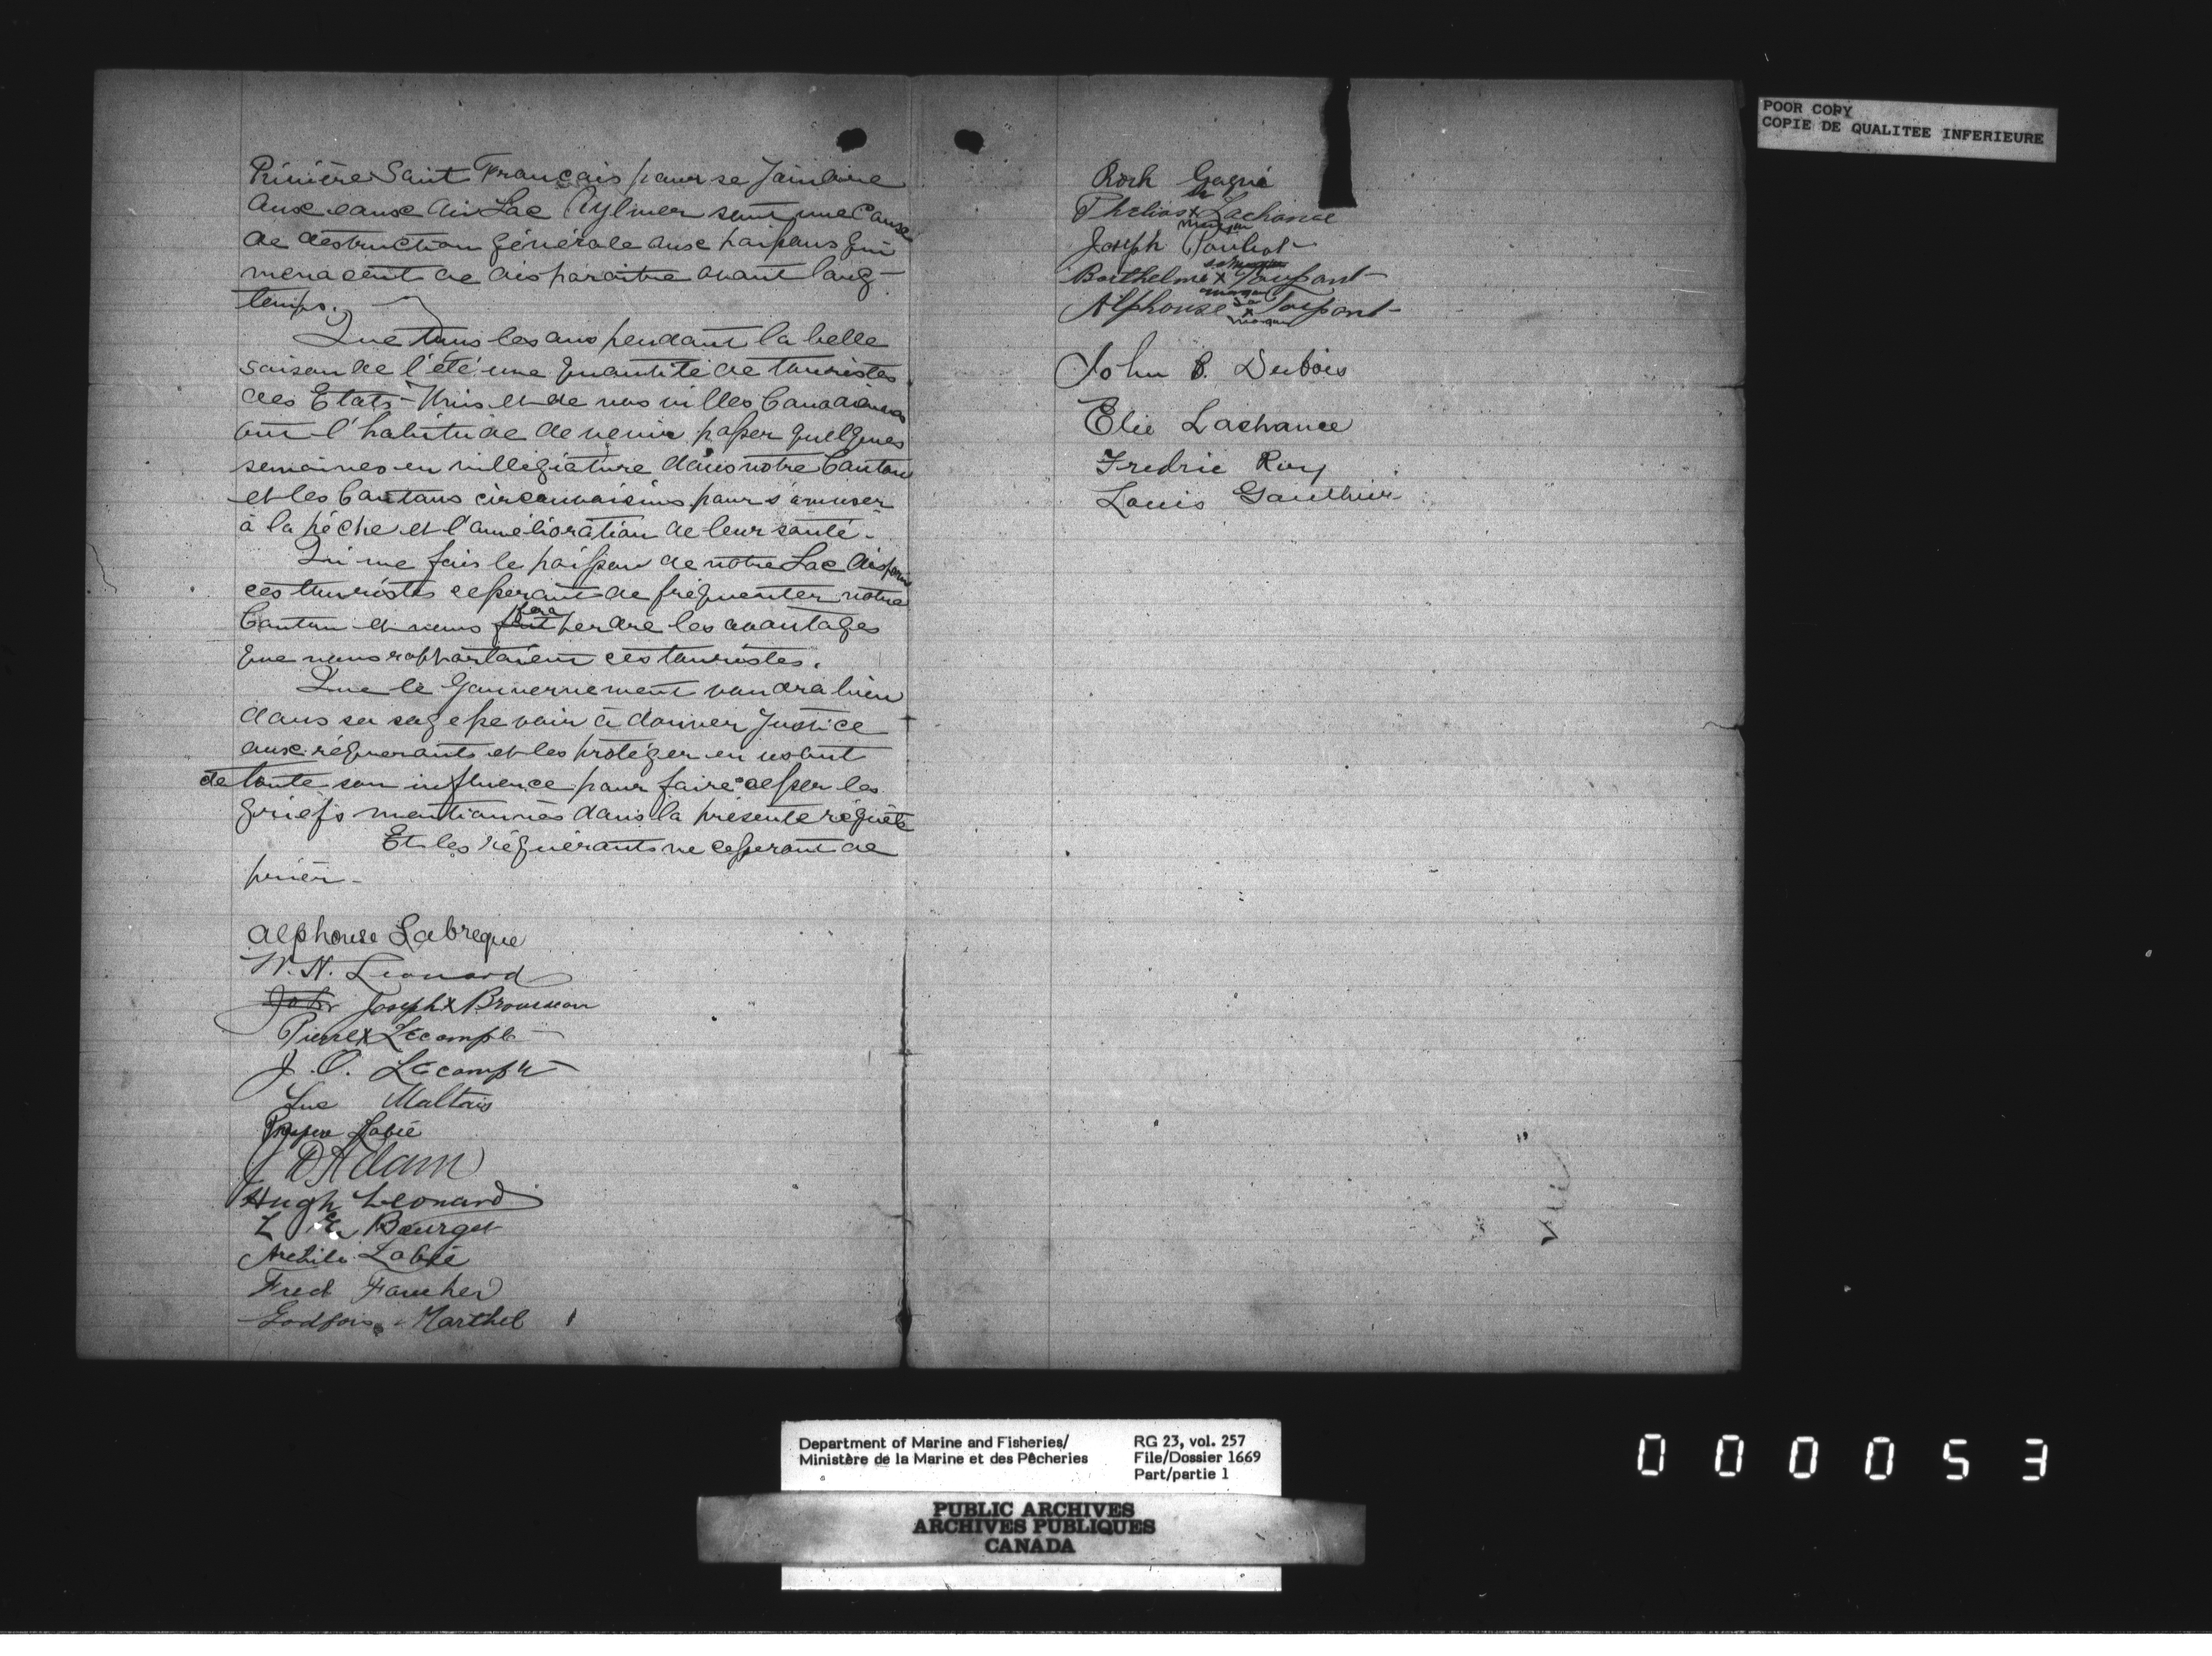 Rivière Saint Français pour se joindre
aux eaux du Lac Aylmer sont une Cause
de destruction générale aux poissons qui
menacent de disparaitre avant long-
temps.
Que tous les ans pendant la belle
saison de l'été une quantité de touristes
des Etats-Unis et de nos villes Canadiennes
ont l'habitude de venir passer quelques
semaines en villégiature dans notre Canton
et les Cantons circonvoisins pour s'amuser
à la pêche et l'amélioration de leur santé.
Qu'une fois le poisson de notre Lac disparu
ces touristes cesseront de fréquenter notre
Canton et nous fera perdre les avantages
que nous rapportaient ces touristes.
Que le Gouvernement voudra bien
dans sa sagesse voir à donner Justice
aux réquerants et les protéger en usant
de toute son influence pour faire cesser les
griefs mentionnés dans la présente réquête
Et les réquérants ne cesseront de
prier-
Alphonse Labreque
W. N. Leonard
Joseph X Brousseau
Pierre X Lecompte
J. O. Lecompte
Luc Maltais
Labié
J D Adam
Hugh Leonard
L Bourget
Archile Labié
Fred Faucher
Marthel
Roch Gagné
Phelias X Lachance
sa
marque
Joseph Pouliot
Barthelmé X Toussant
Alphonse X Toussant
sa
marque
John B. Dubois
Elie Lachance
Fredric Roy
Louis Gauthier
POOR COPY
COPIE DE QUALITEE INFERIEURE
Department of Marine and Fisheries/
Ministère de la Marine et des Pêcheries
RG 23, vol. 257
File/Dossier 1669
Part/partie 1
PUBLIC ARCHIVES
ARCHIVES PUBLIQUES
CANADA
000053